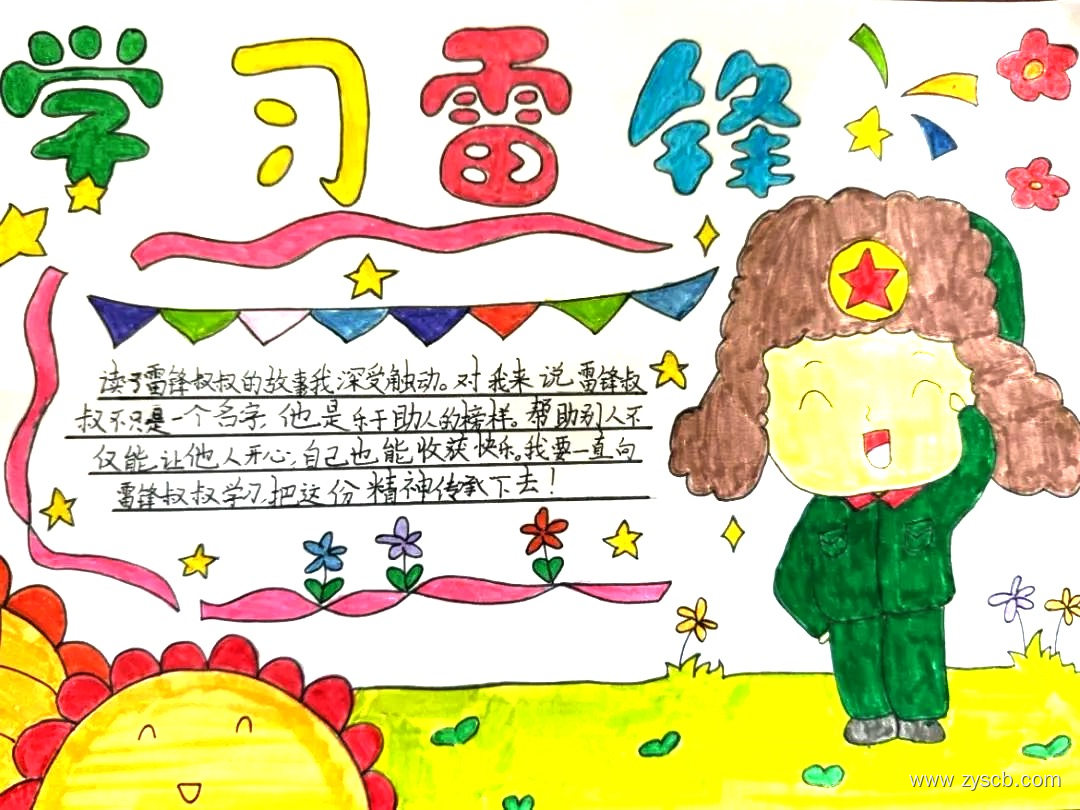 学习雷锋
读了雷锋叔叔的故事我深受触动。对我来说雷锋叔
叔不只是一个名字,他是乐于助人的榜样。帮助别人不
仅能让他人开心,自己也能收获快乐。我要一直向
雷锋叔叔学习,把这份精神传承下去!
www.zyscb.com